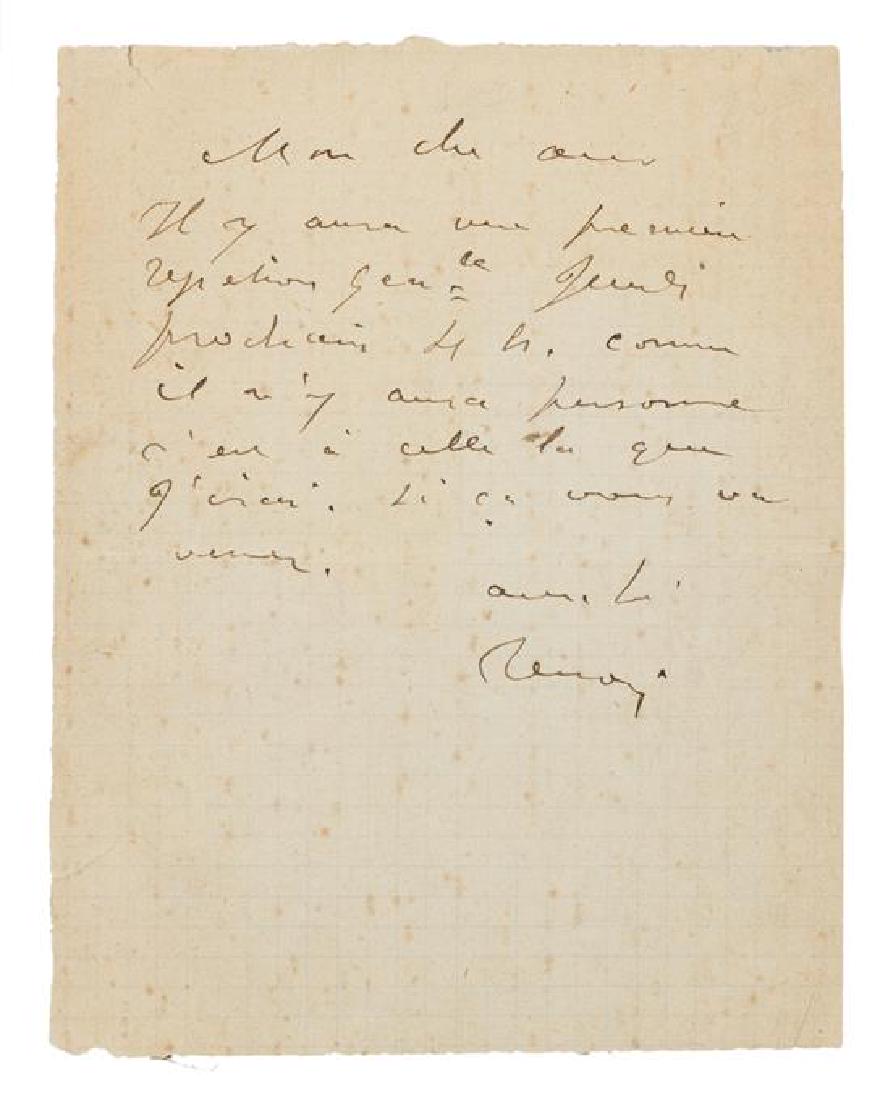 Mon cher ami
Il y aura une première
repetion Genle Jeudi
prochain 4 h. comme
il n'y aura personne
c'est à celle la que
j'irai. Si ça vous va
venez.
amitié
Renoir